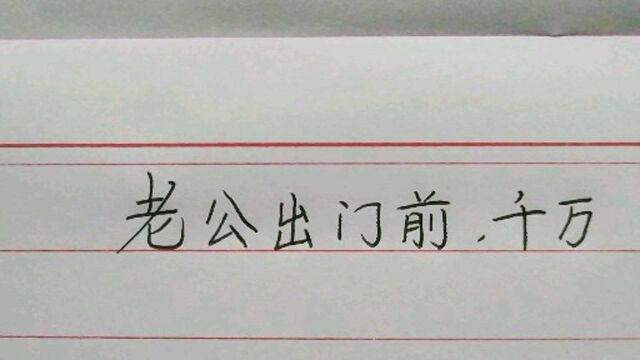 老公出门前,千万